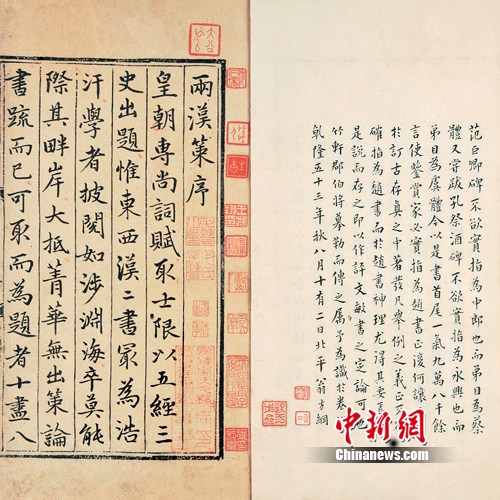 范巨卿碑不欲實指為中郎也而弟目為蔡
體又嘗跋孔祭酒碑不欲實指為永興也而
弟目為虞體今以是書首尾一氣九萬八千餘
言使鑒賞家必實指為趙書正復何讓
於訂古存真之中著發凡舉例之義正不
確指為趙書而於趙書神理尤得其要
是說而存之即以作許文敏書之定論可也
竹軒郡伯將摹勒而傳之屬予為識於卷
乾隆五十三年秋八月十有二日北平翁方綱
兩漢策序
皇朝專尚詞賦取士限以五經三
史出題惟東西漢二書冣為浩
汗學者披閱如涉淵海卒莫能
際其畔岸大抵菁華無出策論
書疏而已可取而為題者十盡八
中新網
Chinanews.com